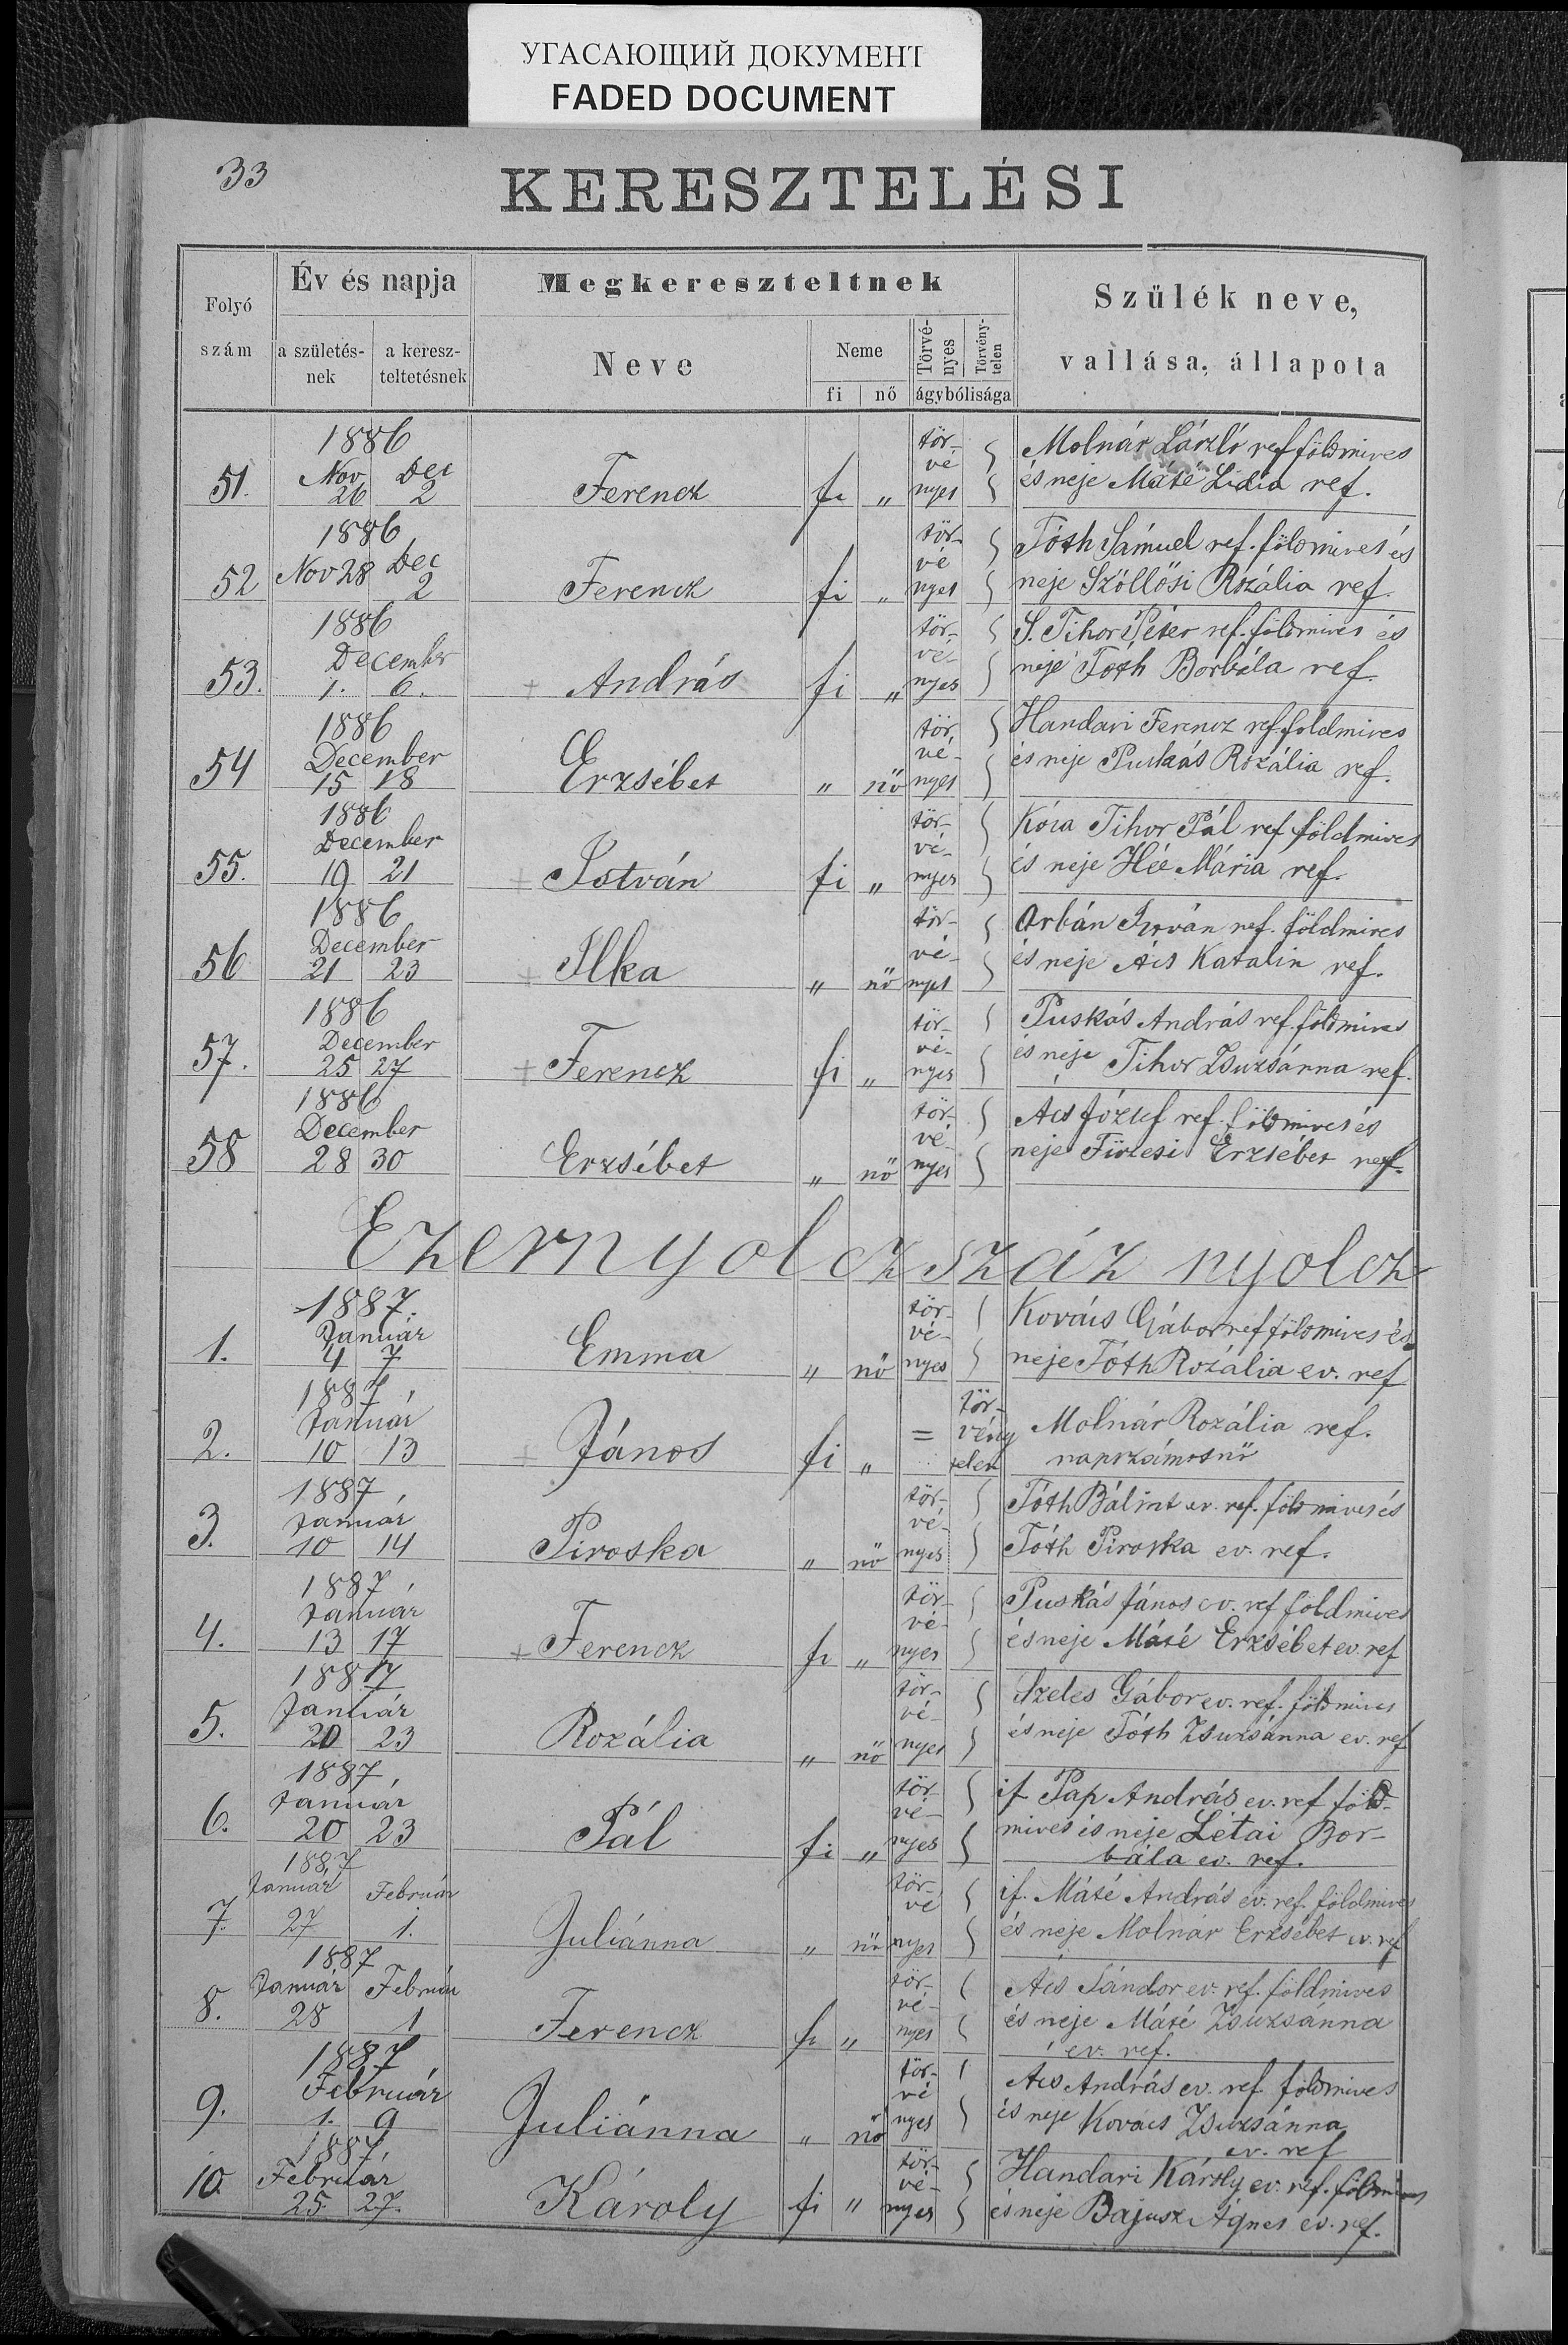 УГАСАЮЩИЙ ДОКУМЕНТ
FADED DOCUMENT
33
KERESZTELÉSI
Folyó szám
Év és napja
a születés-nek
a keresz-teltetésnek
Megkereszteltnek
Neve
Neme
fi nő
Törvé-nyes
Törvény-telen
ágybólisága
Szülék neve,
vallása, állapota
1886
51. Nov 26 Dec 2 Ferencz fi „ tör-vé nyes Molnár László ref földmives
és neje Máté Lidia ref.
1886
52 Nov 28 Dec 2 Ferencz fi „ tör-vé nyes Tóth Sámuel ref. földmives és
neje Szöllősi Rozália ref.
1886
53. December 1. 6. + András fi „ tör-vé-nyes S. Tihor Péter ref. földmives és
neje Tóth Borbála ref.
1886
54 December 15 18 Erzsébet „ nö tör-vé-nyes Handari Ferencz ref. foldmives
és neje Puskás Rozália ref.
1886
55. December 19 21 + István fi „ tör-vé-nyes Kósa Tihor Pál ref földmives
és neje Mária ref.
1886
56 December 21 23 + Ilka „ nö tör-vé-nyes Orbán István ref. földmives
és neje Ács Katalin ref.
1886
57. December 25 27 + Ferencz fi „ tör-vé-nyes Puskás András ref. földmives
és neje Tihor Zsuzsánna ref.
1886
58 December 28 30 Erzsébet „ nö tör-vé-nyes Ács József ref. földmives és
neje Füzesi Erzsébet ref.
Ezernyolczszáz nyolcz
1887.
1. Január 4 7 Emma „ nö tör-vé-nyes Kovács Gábor ref földmives és
neje Tóth Rozália ev. ref
1887,
2. Január 10 13 + János fi „ = tör-vény telen Molnár Rozália ref.
napszámosnö
1887,
3. Január 10 14 Piroska „ nö tör-vé-nyes Tóth Bálint ev. ref. földmives és
Tóth Piroska ev. ref.
1887,
4. Január 13 17 + Ferencz fi „ tör-vé-nyes Puskás János ev. ref foldmives
és neje Máté Erzsébet ev. ref
1887
5. Január 20 23 Rozália „ nö tör-vé-nyes Szeles Gábor ev. ref. földmives
és neje Tóth Zsuzsánna ev. ref
1887,
6. Január 20 23 Pál fi „ tör-vé-nyes if Pap András ev. ref föld-
mives és neje Létai Bor-
bála ev. ref.
1887
7. Január 27 Február 1. Juliánna „ nö tör-vé nyes if. Máté András ev. ref. földmives
és neje Molnár Erzsébet ev. ref
1887
8. Január 28 Február 1 Ferencz fi „ tör-vé-nyes Ács Sándor ev. ref. földmives
és neje Máté Zsuzsánna
ev. ref.
1887
9. Február 1. 9 Juliánna „ nö tör-vé nyes Ács András ev. ref földmives
és neje Kovács Zsuzsánna
ev. ref
1887,
10. Február 25. 27. Károly fi „ tör-vé-nyes Handari Károly ev. ref. földmives
és neje Bajusz Ágnes ev. ref.